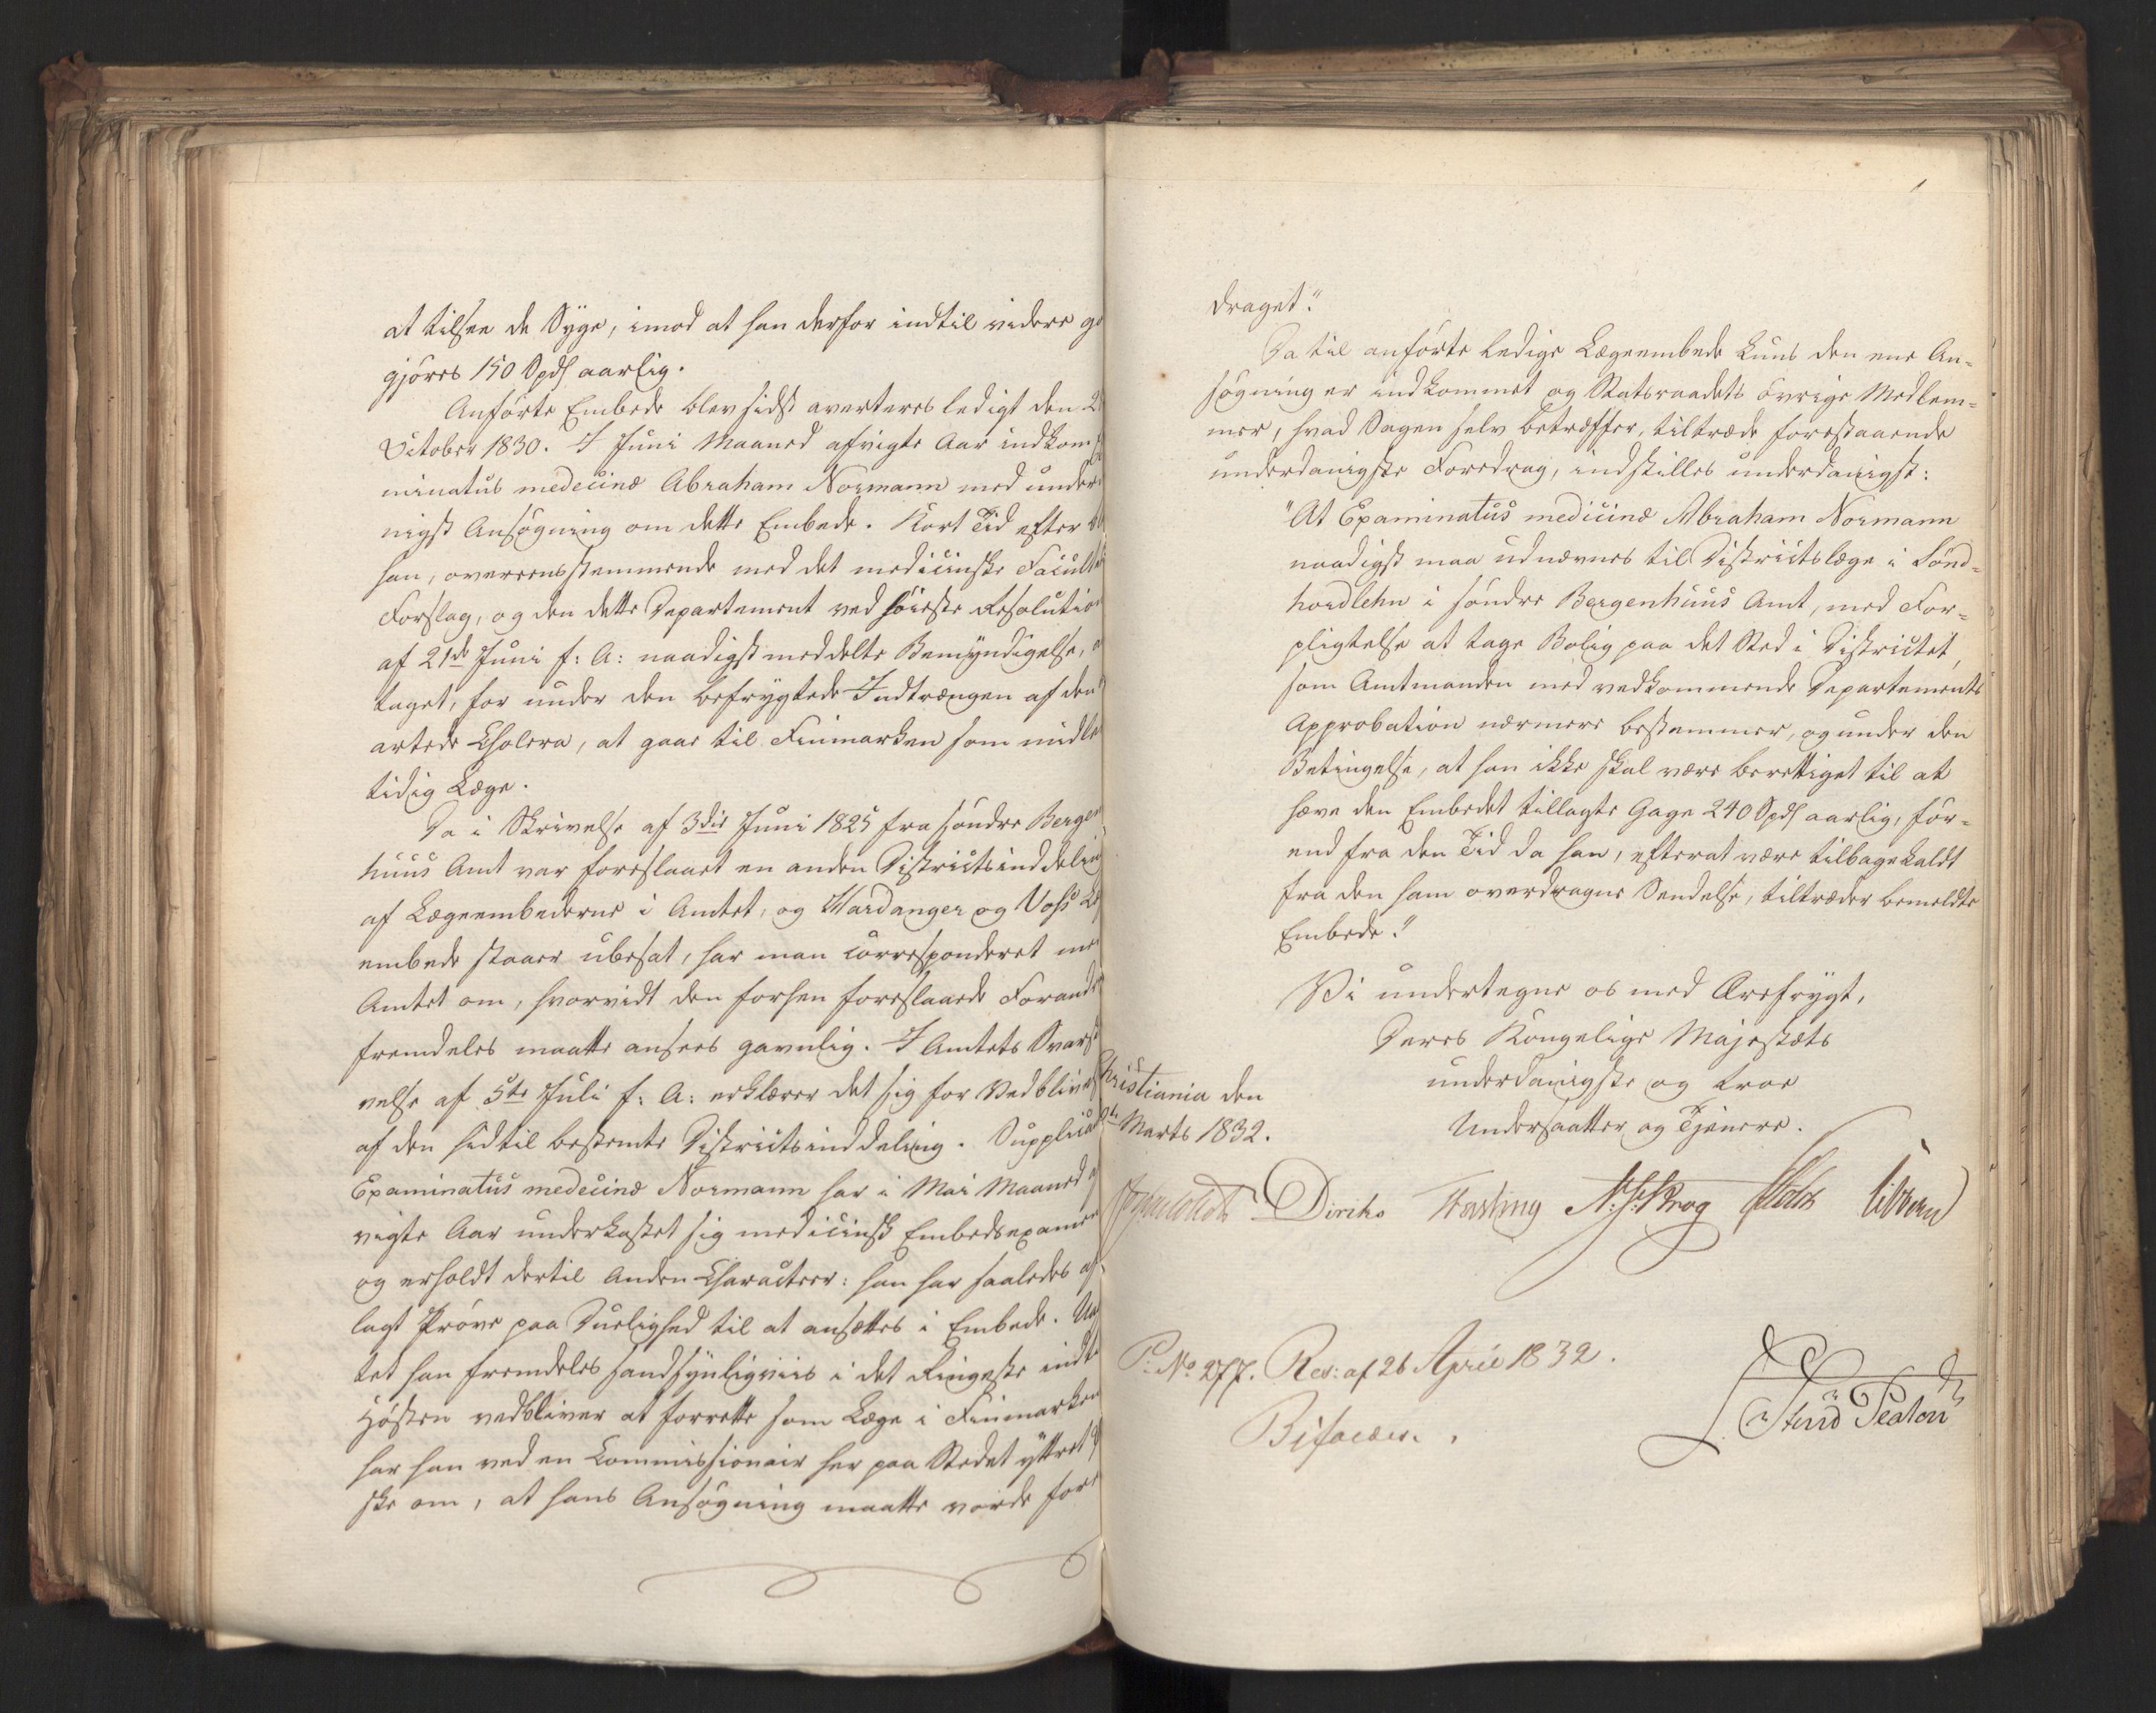 at tilsee de Syge, imod at han derfor indtil videre go
gjöres 150 Spds aarlig.
Anførte Embede blev sidst averteret ledigt den 2
October 1830. I Juni Maaned afvigte Aar indkom
minatus medecinæ Abraham Normann med under
nigst Ansøgning om dette Embede. Kort Tid efter
han, overeensstemmende med det medicinske Facult
Forslag, og den dette Departement ved høieste Resolution
af 21de Juni f: A: naadigst meddelte Bemyndigelse,
taget, for under den befrygtede Indtrængen af den
artede Cholera, at gaae til Finmarken som midle
tidig Læge.
Da i Skrivelse af 3die Juni 1825 fra søndre Bergen
huus Amt var foreslaaet en anden Districtsinddeling
af Lægeembederne i Amtet, og Hardanger og Voss Læ
embede staaer ubesat, har man corresponderet me
Amtet om, hvorvidt den forhen foreslaaede Forand
fremdeles maatte ansees gavnlig. I Amtets Svars
velse af 5te Juli f: A: erklærer det sig for Vedbliv
af den hidtil bestemte Districtsinddeling. Supplica
Examinatus medecinæ Normann har i Mai Maaned
vigte Aar underkastet sig medicinsk Embedsexamen
og erholdt dertil Anden Characteer: han har saaledes af
lagt Prøve paa Duelighed til at ansættes i Embede. Uag
tet han fremdeles sandsynligviis i det Ringeste indt
Høsten vedbliver at forrette som Læge i Finmarken
har han ved en Commissionair her paa Stedet yttret
ske om, at hans Ansøgning maatte vorde fore
draget."
Da til anførte ledige Lægeembede kuns den ene An-
søgning er indkommet og Statsraadets övrige Medlem-
mer, hvad Sagen selv betræffer, tiltræde forestaaende
underdanigste Foredrag, indstilles underdanigst:
"At Examinatus medicinæ Abraham Normann
naadigst maa udnævnes til Districtslæge i Sönd-
hordlehn i söndre Bergenhuus Amt, med For-
pligtelse at tage Bolig paa det Sted i Districtet,
som Amtmanden med vedkommende Departements
Approbation nærmere bestemmer, og under den
Betingelse, at han ikke skal være berettiget til at
hæve den Embedet tillagte Gage 240 Spds aarlig, før-
end fra den Tid da han, efterat være tilbagekaldt
fra den ham overdragne Sendelse, tiltræder bemeldte
Embede."
Vi undertegne os med Ærefrygt,
Deres Kongelige Majestæts
underdanigste og troe
Undersaatter og Tjenere.
Christiania den
Marts 1832.
Diriks Fasting N. J. Krog Holst Sibbern
P: No 277. Res: af 26 April 1832.
Bifaldes.